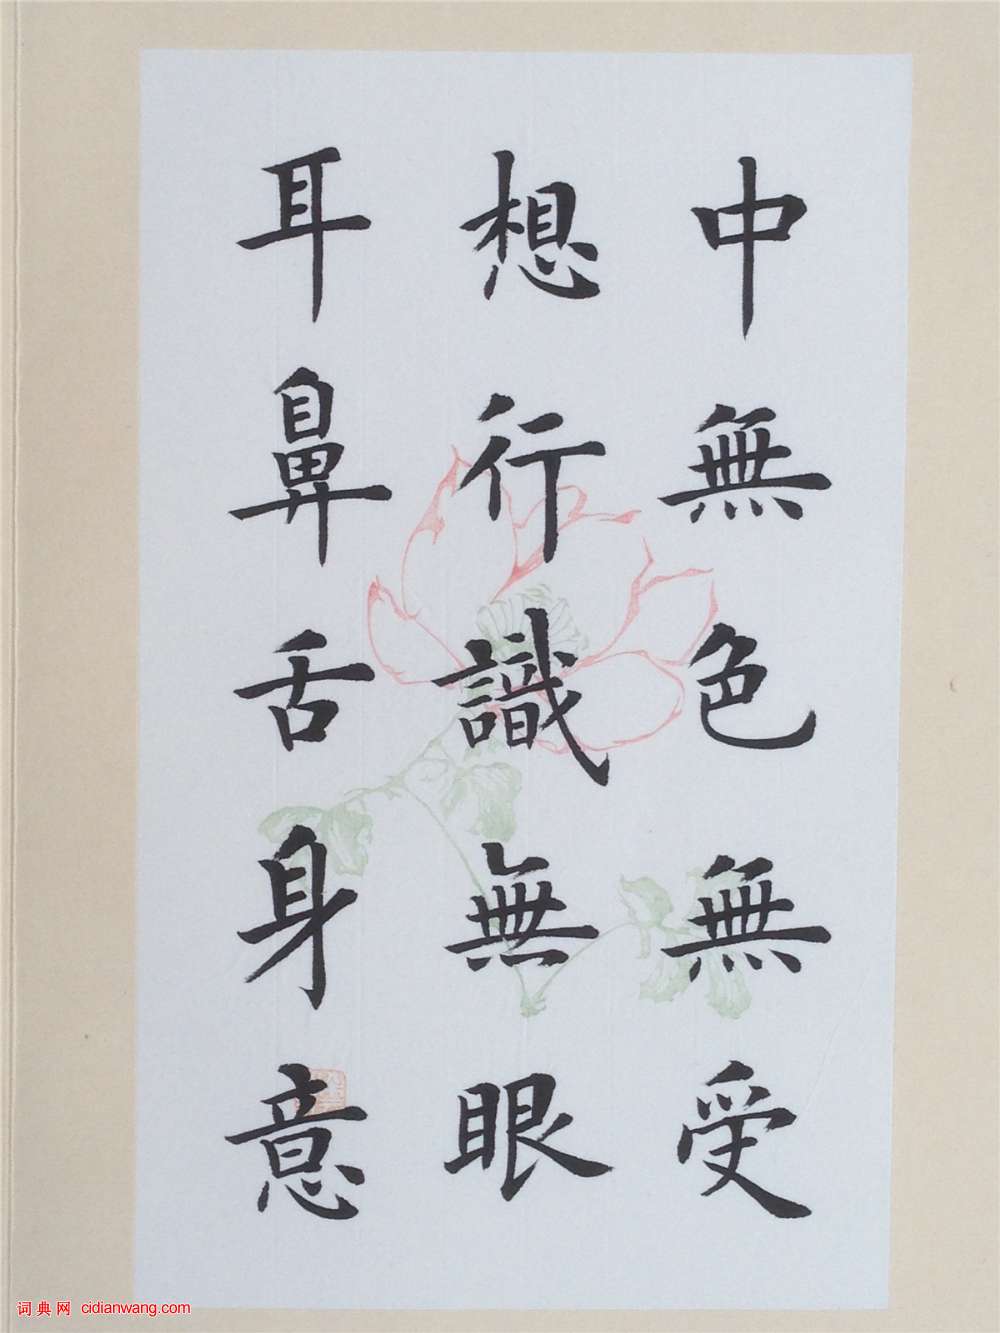 中無色無受
想行識無眼
耳鼻舌身意
词典网 cidianwang.com